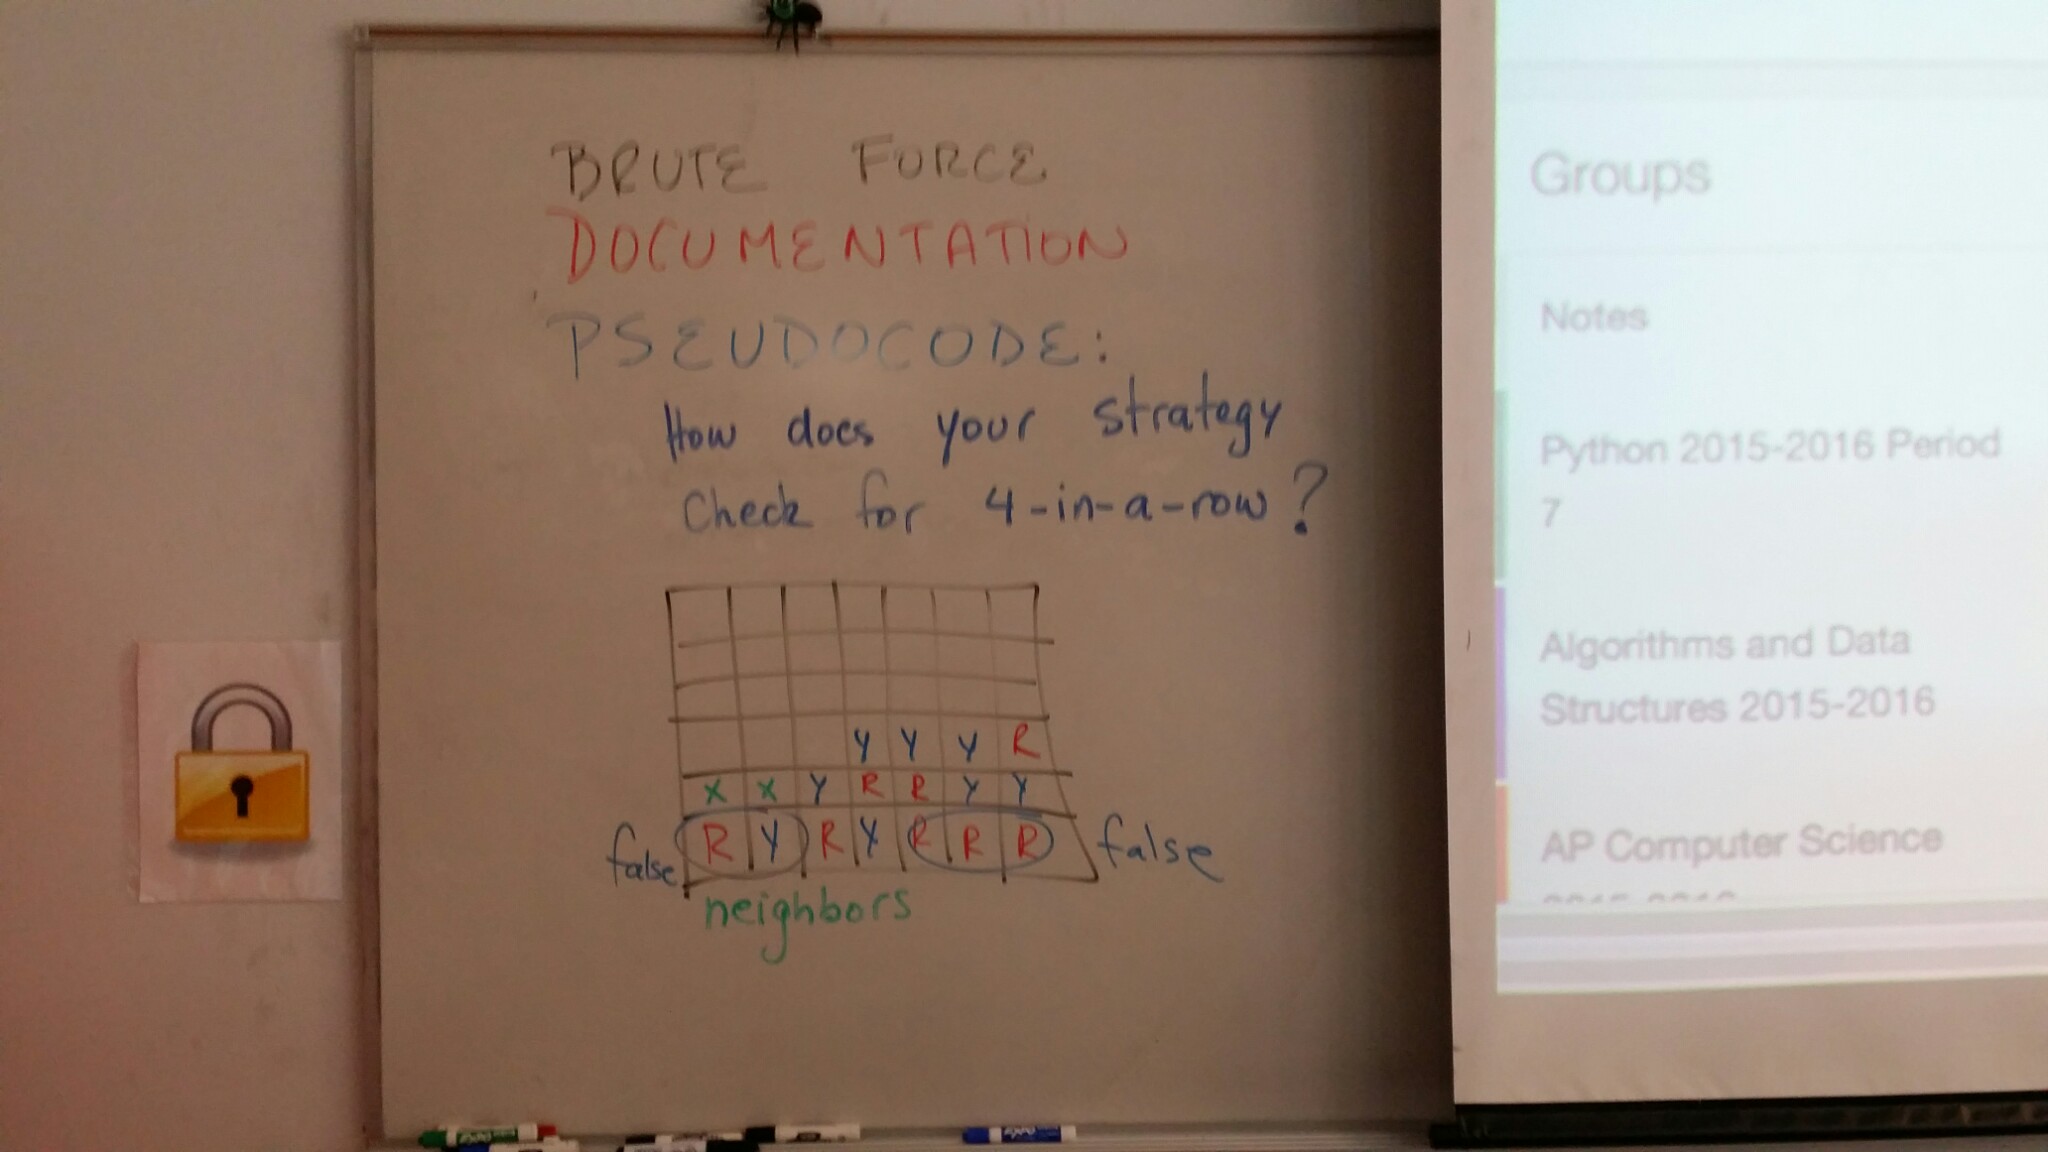 BRUTE FORCE
DOCUMENTATION
PSEUDOCODE:
How does your strategy
Check for 4-in-a-row?
Y Y Y R
X X Y R R Y Y
false R Y R Y R R R false
neighbors
Groups
Notes
Python 2015-2016 Period
7
Algorithms and Data
Structures 2015-2016
AP Computer Science